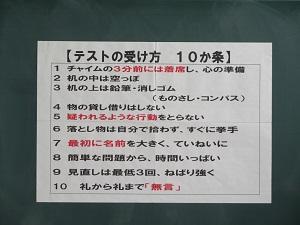 【テストの受け方 10か条】
1 チャイムの3分前には着席し、心の準備
2 机の中は空っぽ
3 机の上は鉛筆・消しゴム
（ものさし・コンパス）
4 物の貸し借りはしない
5 疑われるような行動をとらない
6 落とし物は自分で拾わず、すぐに挙手
7 最初に名前を大きく、ていねいに
8 簡単な問題から、時間いっぱい
9 見直しは最低3回、ねばり強く
10 礼から礼まで「無言」